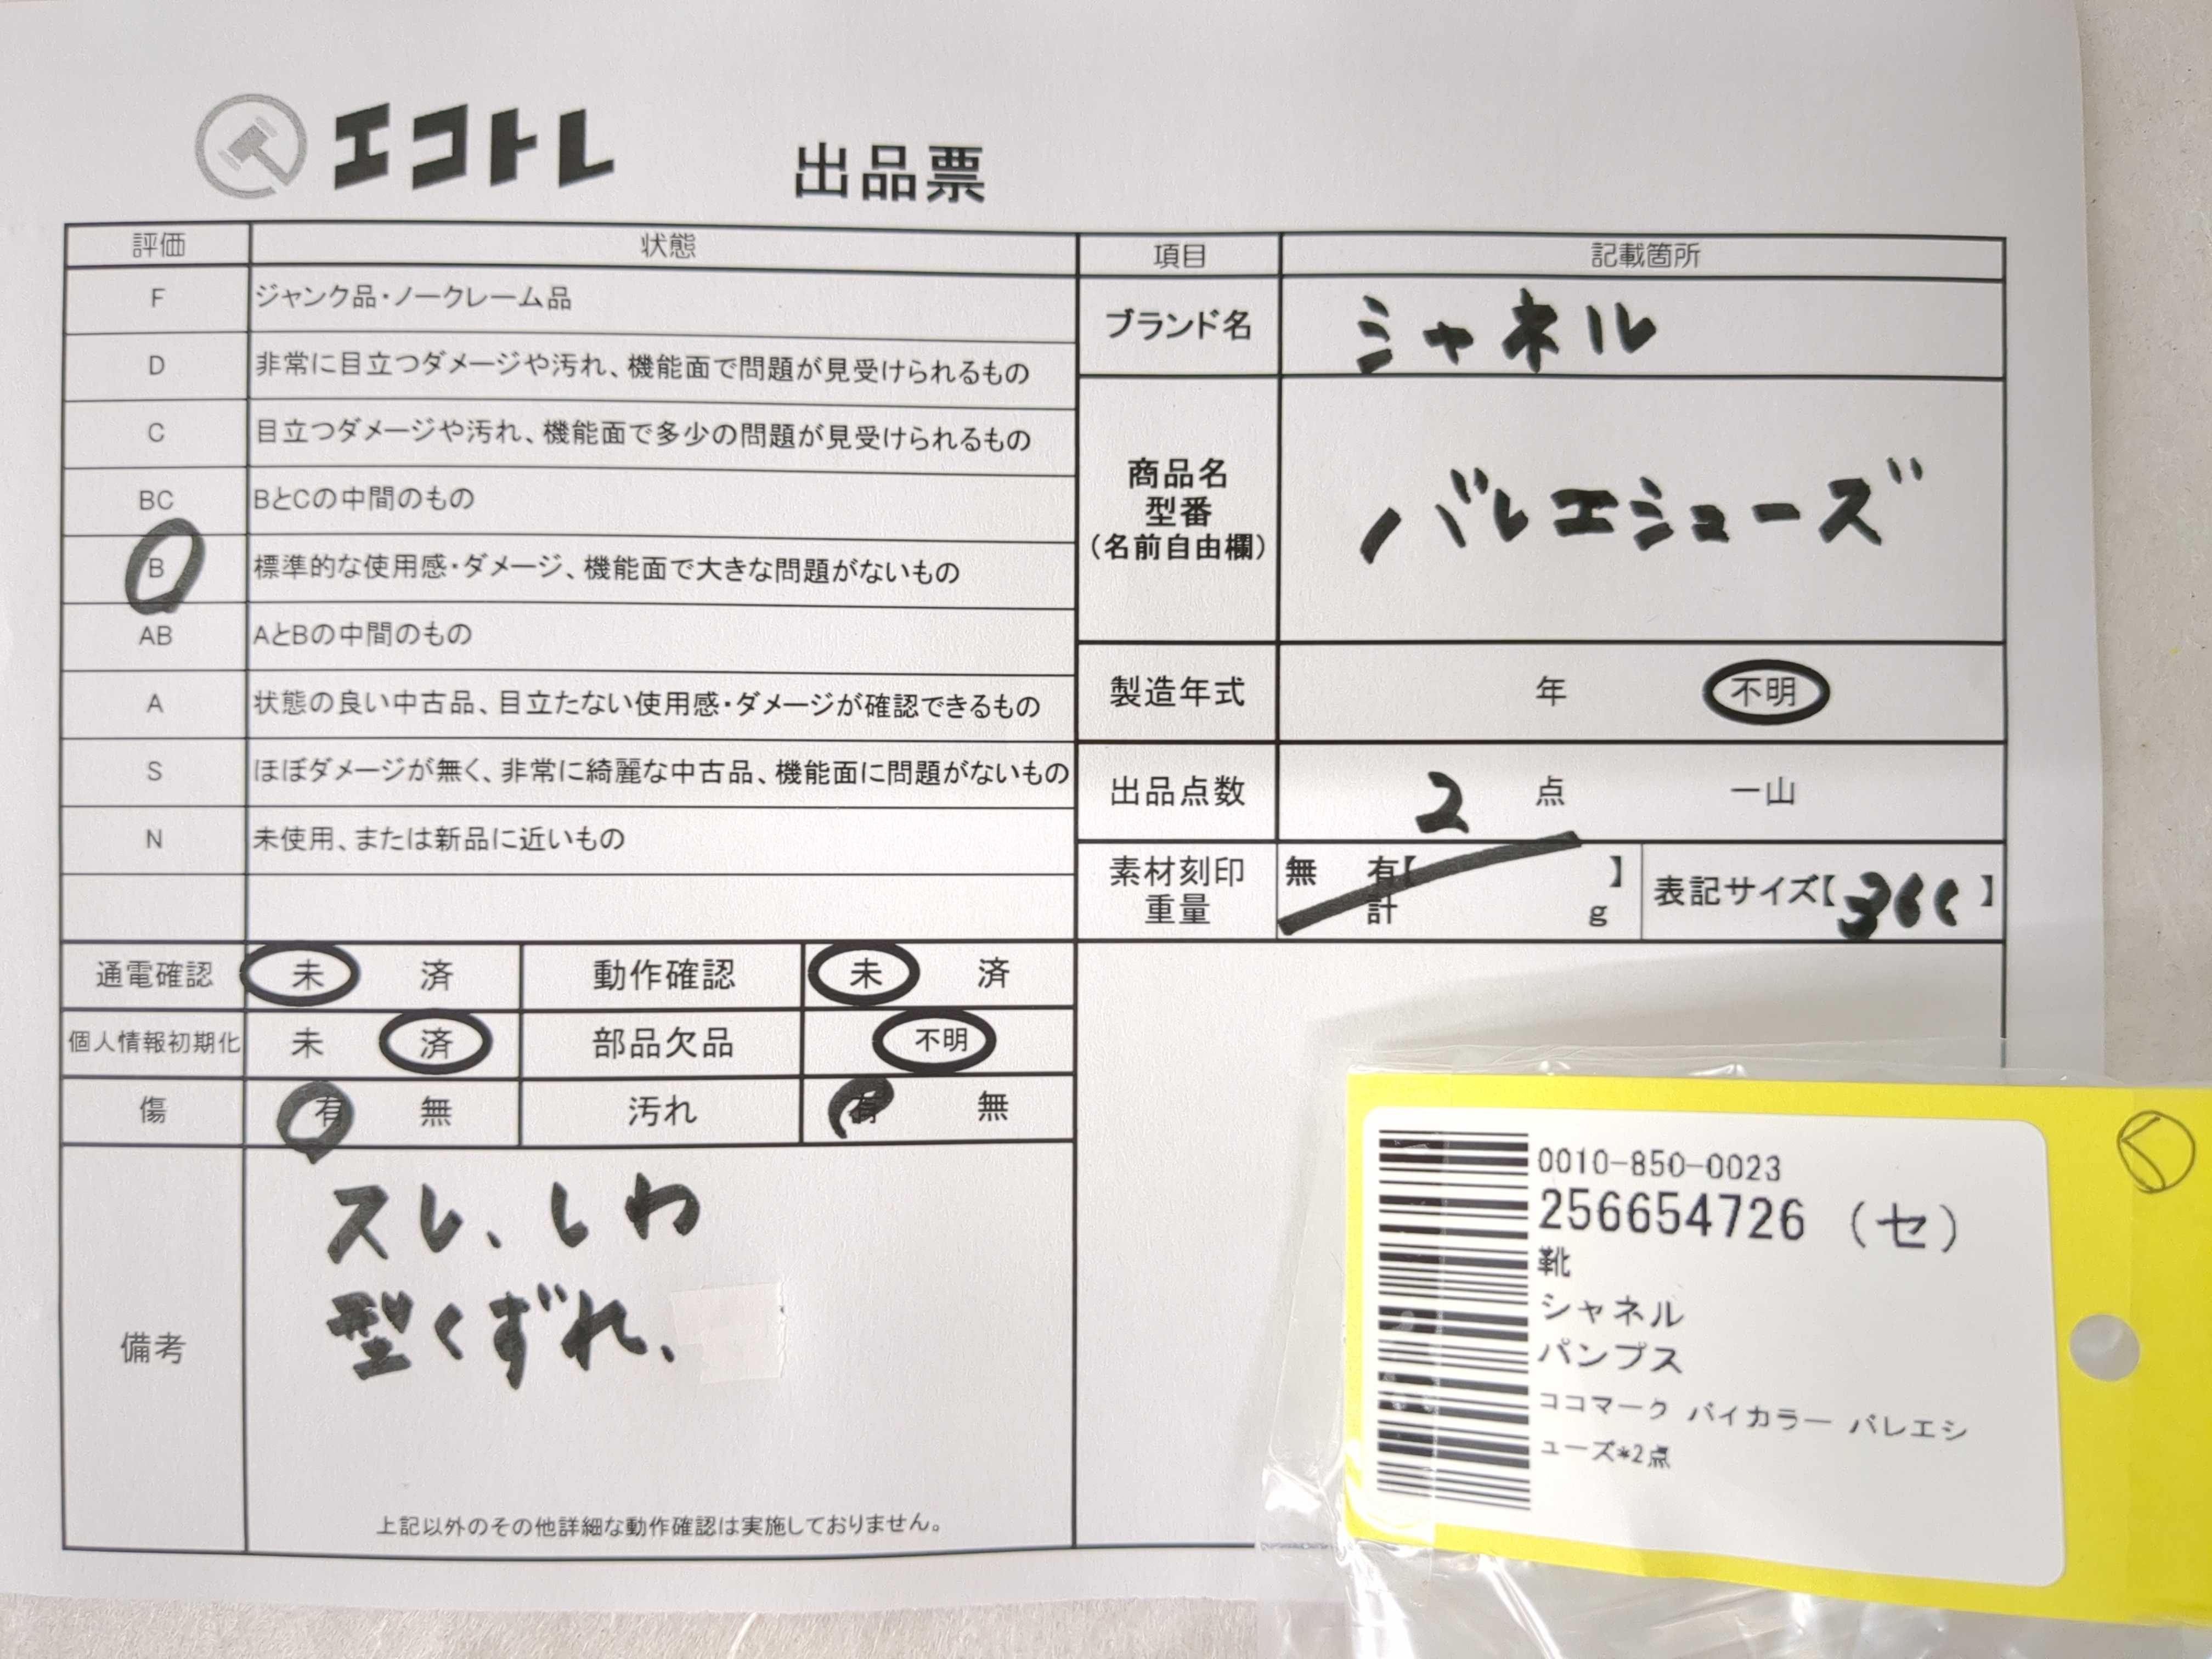 エコトレ 出品票
評価 状態
F ジャンク品・ノークレーム品
D 非常に目立つダメージや汚れ、機能面で問題が見受けられるもの
C 目立つダメージや汚れ、機能面で多少の問題が見受けられるもの
BC BとCの中間のもの
B 標準的な使用感・ダメージ、機能面で大きな問題がないもの
AB AとBの中間のもの
A 状態の良い中古品、目立たない使用感・ダメージが確認できるもの
S ほぼダメージが無く、非常に綺麗な中古品、機能面に問題がないもの
N 未使用、または新品に近いもの
通電確認 未 済 動作確認 未 済
個人情報初期化 未 済 部品欠品 不明
傷 有 無 汚れ 有 無
備考
スレ、しわ
型くずれ、
上記以外のその他詳細な動作確認は実施しておりません。
項目 記載箇所
ブランド名 シャネル
商品名
型番
(名前自由欄)
バレエシューズ
製造年式 年 不明
出品点数 2 点 一山
素材刻印 無 有【 】
重量 計 g
表記サイズ【 】
0010-850-0023
256654726 (セ)
靴
シャネル
パンプス
ココマーク バイカラー バレエシ
ューズ*2点